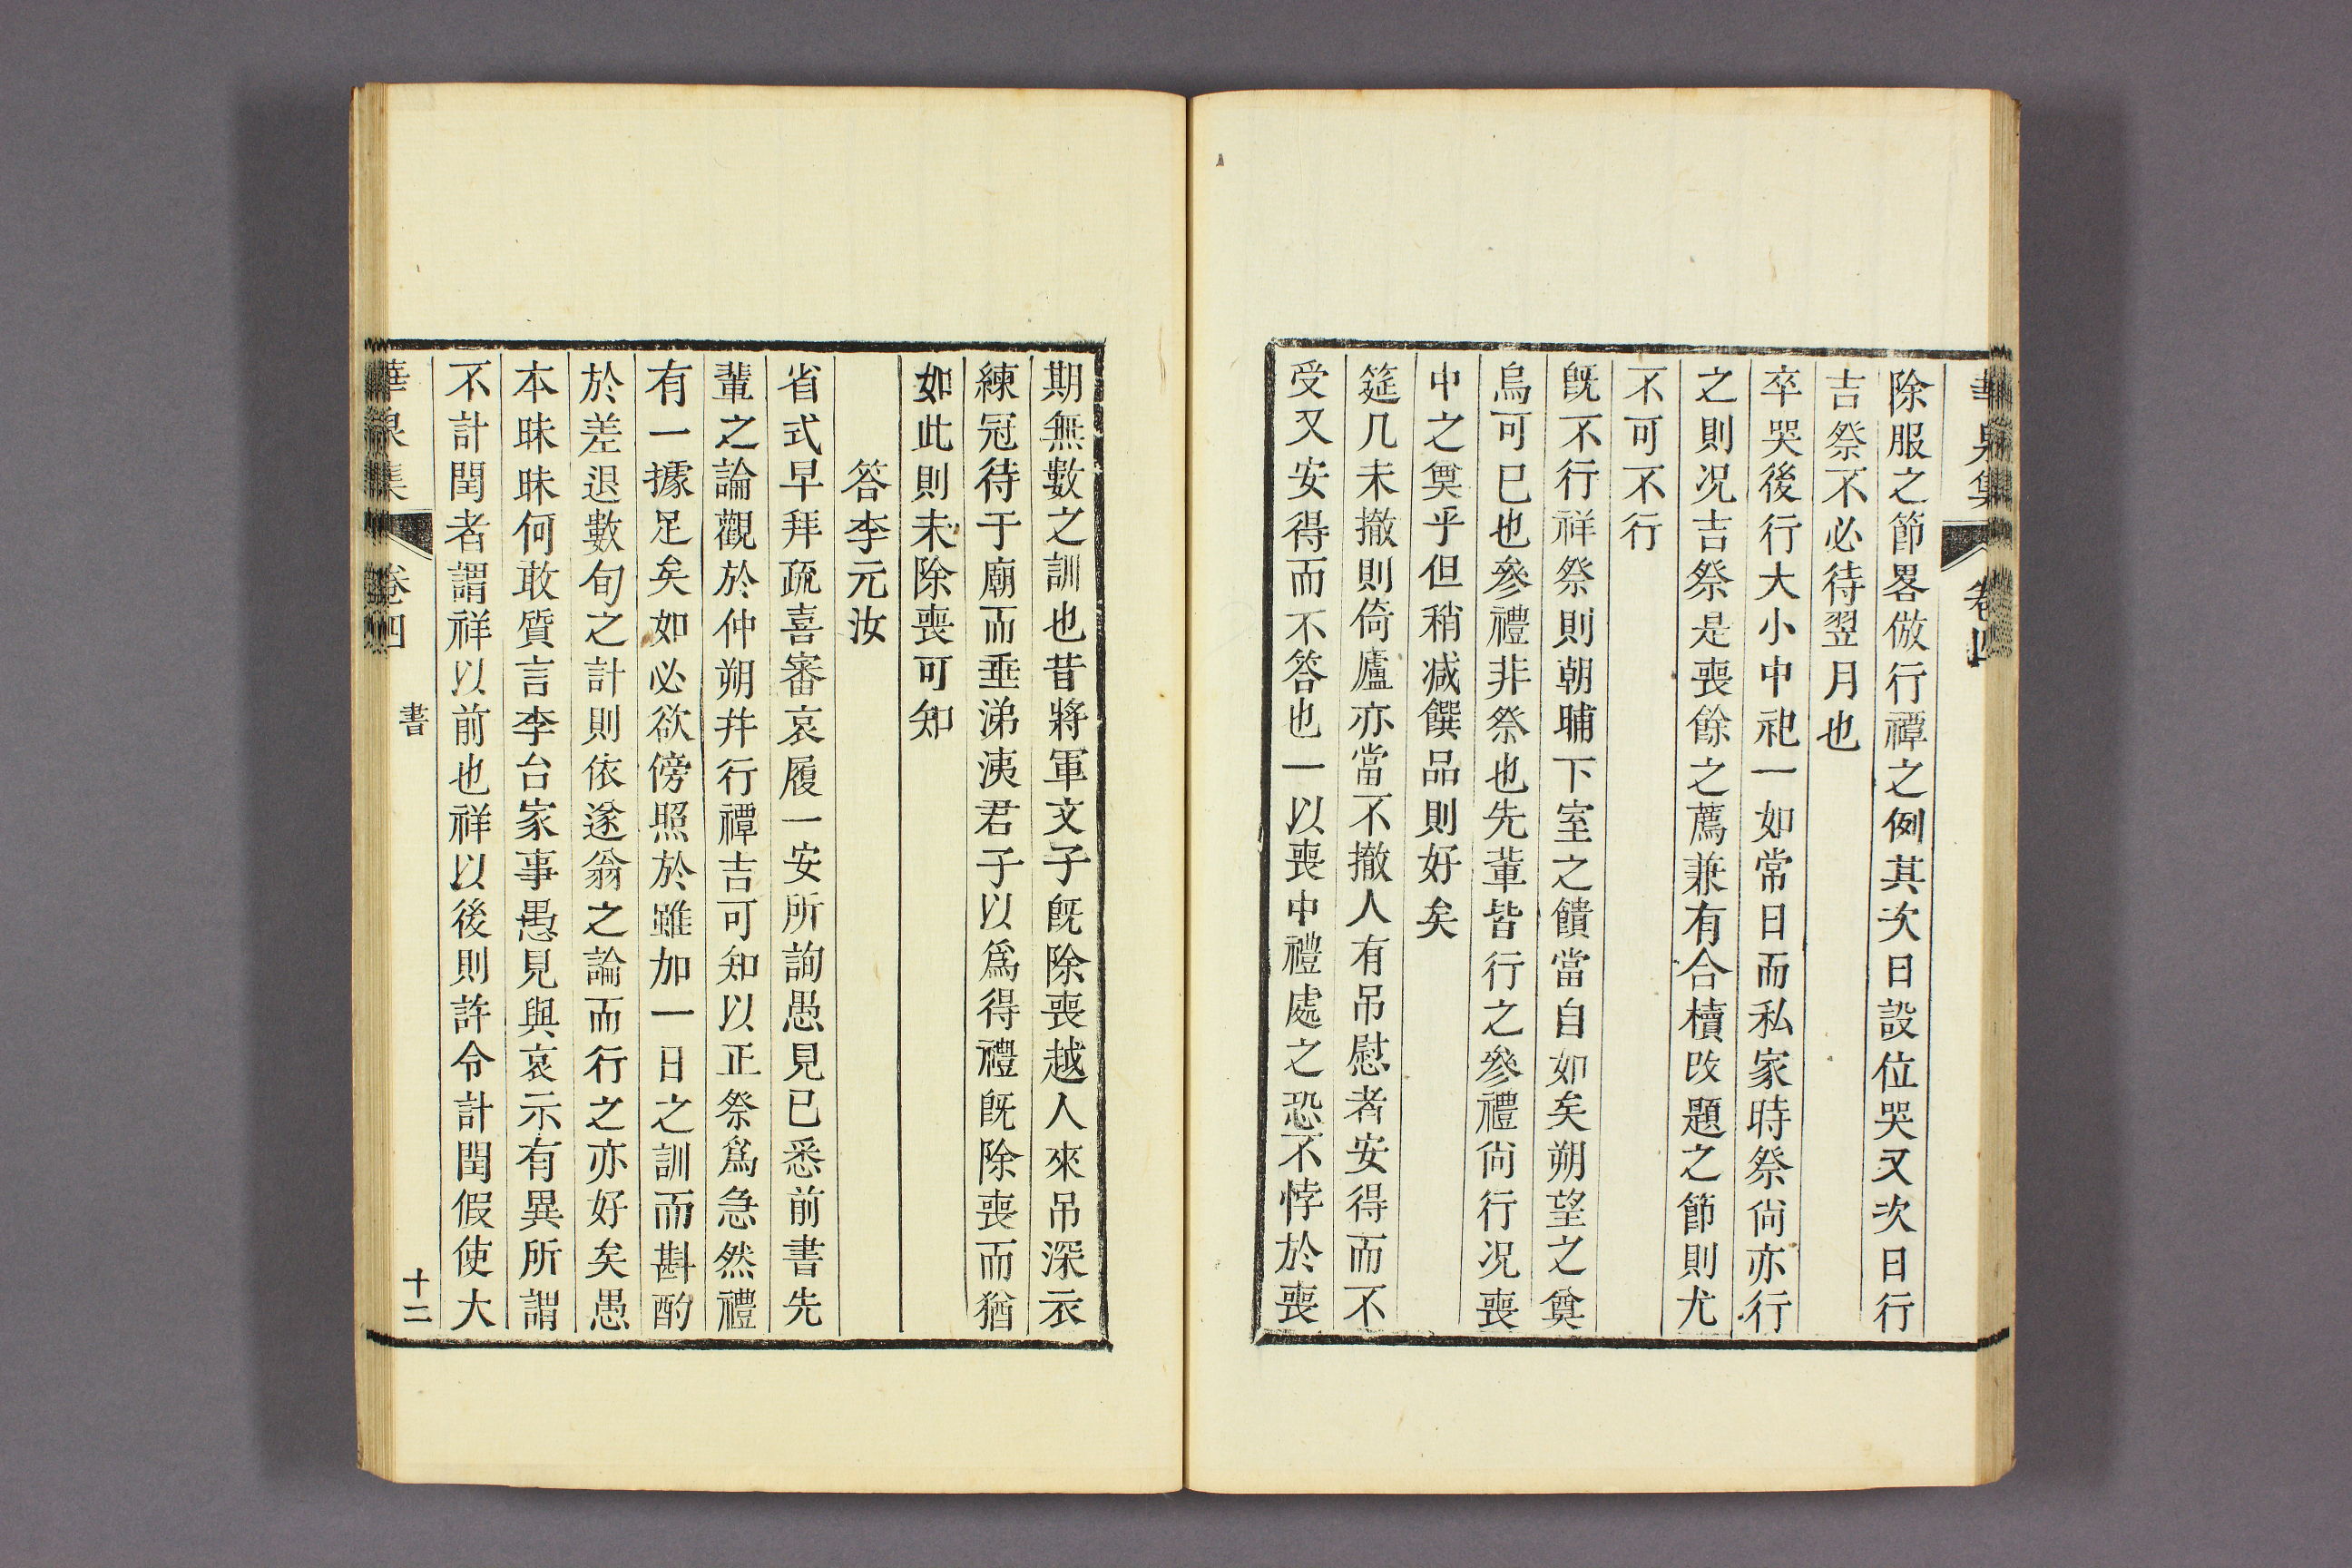 華泉集 卷四
除服之節畧倣行禫之例其次日設位哭又次日行
吉祭不必待翌月也
卒哭後行大小中祀一如常日而私家時祭尙亦行
之則况吉祭是喪餘之薦兼有合櫝改題之節則尤
不可不行
旣不行祥祭則朝晡下室之饋當自如矣朔望之奠
烏可已也參禮非祭也先輩皆行之參禮尙行况喪
中之奠乎但稍减饌品則好矣
筵几未撤則倚廬亦當不撤人有吊慰者安得而不
受又安得而不答也一以喪中禮處之恐不悖於喪
期無數之訓也昔將軍文子旣除喪越人來吊深衣
練冠待于廟而垂涕洟君子以爲得禮旣除喪而猶
如此則未除喪可知
答李元汝
省式早拜疏喜審哀履一安所詢愚見已悉前書先
輩之論觀於仲朔幷行禫吉可知以正祭爲急然禮
有一據足矣如必欲傍照於雖加一日之訓而斟酌
於差退數旬之計則依遂翁之論而行之亦好矣愚
本昧昧何敢質言李台家事愚見與哀示有異所謂
不計閏者謂祥以前也祥以後則許令計閏假使大
華泉集 卷四 書 十二